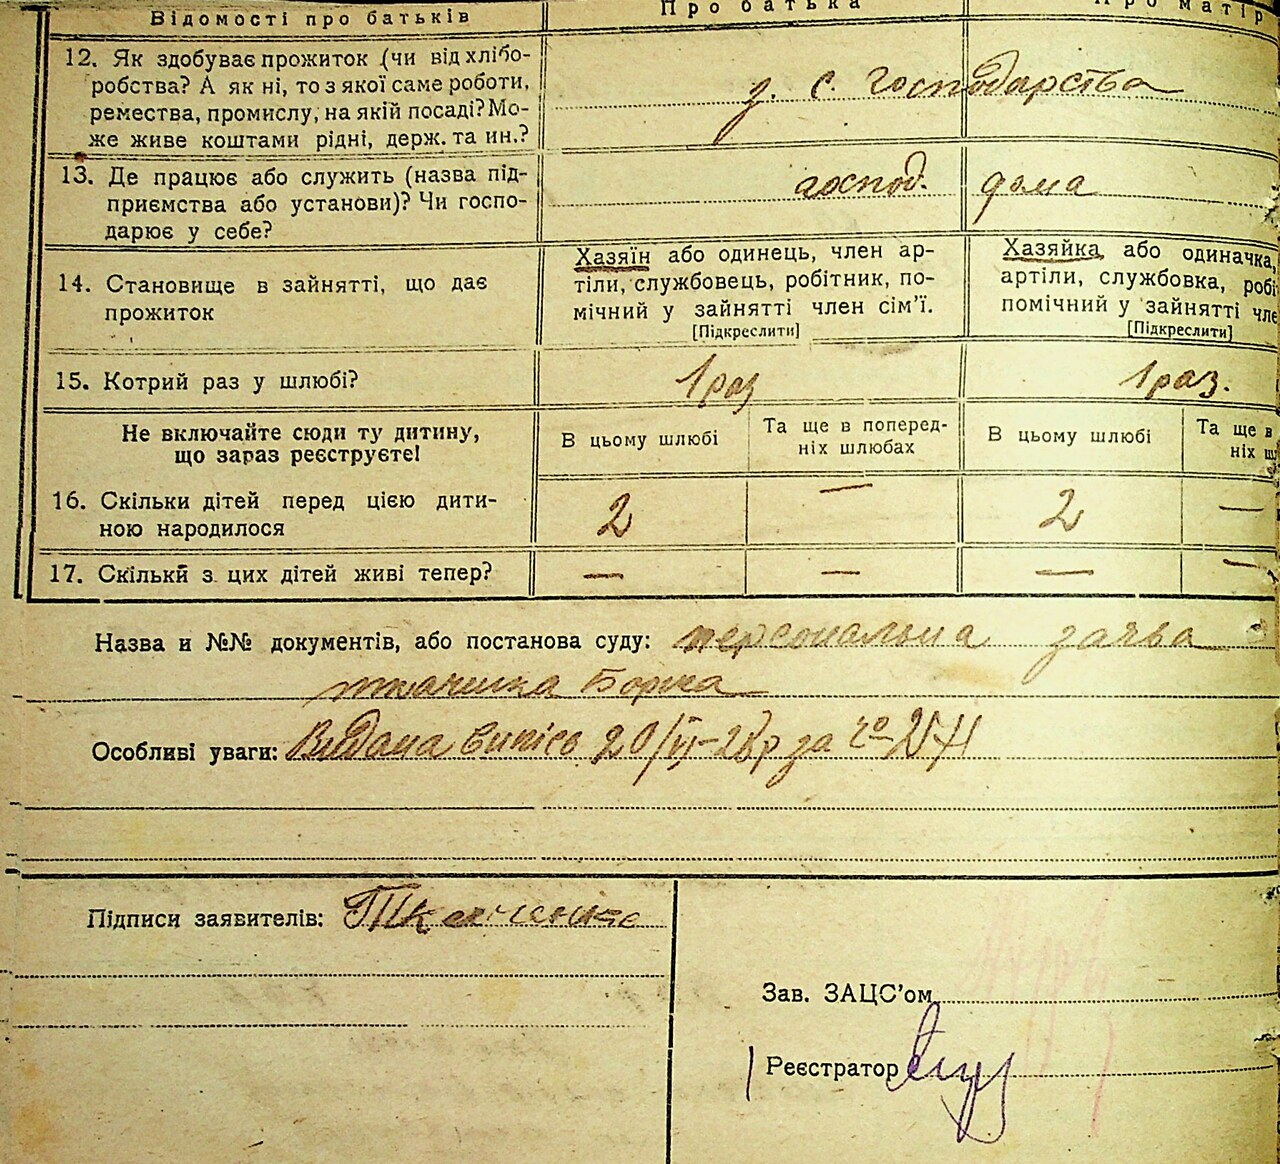 Відомості про батьків
Про батька
Про матір
12. Як здобуває прожиток (чи від хлібо-
робства? А як ні, то з якої саме роботи,
ремества, промислу, на якій посаді? Мо-
же живе коштами рідні, держ. та ин.?
з. с. господарства
13. Де працює або служить (назва під-
приємства або установи)? Чи госпо-
дарює у себе?
господ. дома
14. Становище в зайнятті, що дає
прожиток
Хазяїн або одинець, член ар-
тіли, службовець, робітник, по-
мічний у зайнятті член сім'ї.
[Підкреслити]
Хазяйка або одиначка,
артіли, службовка, робі
помічний у зайнятті чле
[Підкреслити]
15. Котрий раз у шлюбі?
1 раз
1 раз.
Не включайте сюди ту дитину,
що зараз реєструєте!
В цьому шлюбі
Та ще в поперед-
ніх шлюбах
В цьому шлюбі
Та ще в
ніх ш
16. Скільки дітей перед цією дити-
ною народилося
2 — 2 —
17. Скільки з цих дітей живі тепер?
— — — —
Назва и №№ документів, або постанова суду: персональна заява
Особливі уваги: Видана випись 20/VI-28р за
Підписи заявителів: Ткаченко
Зав. ЗАЦС'ом
Реєстратор